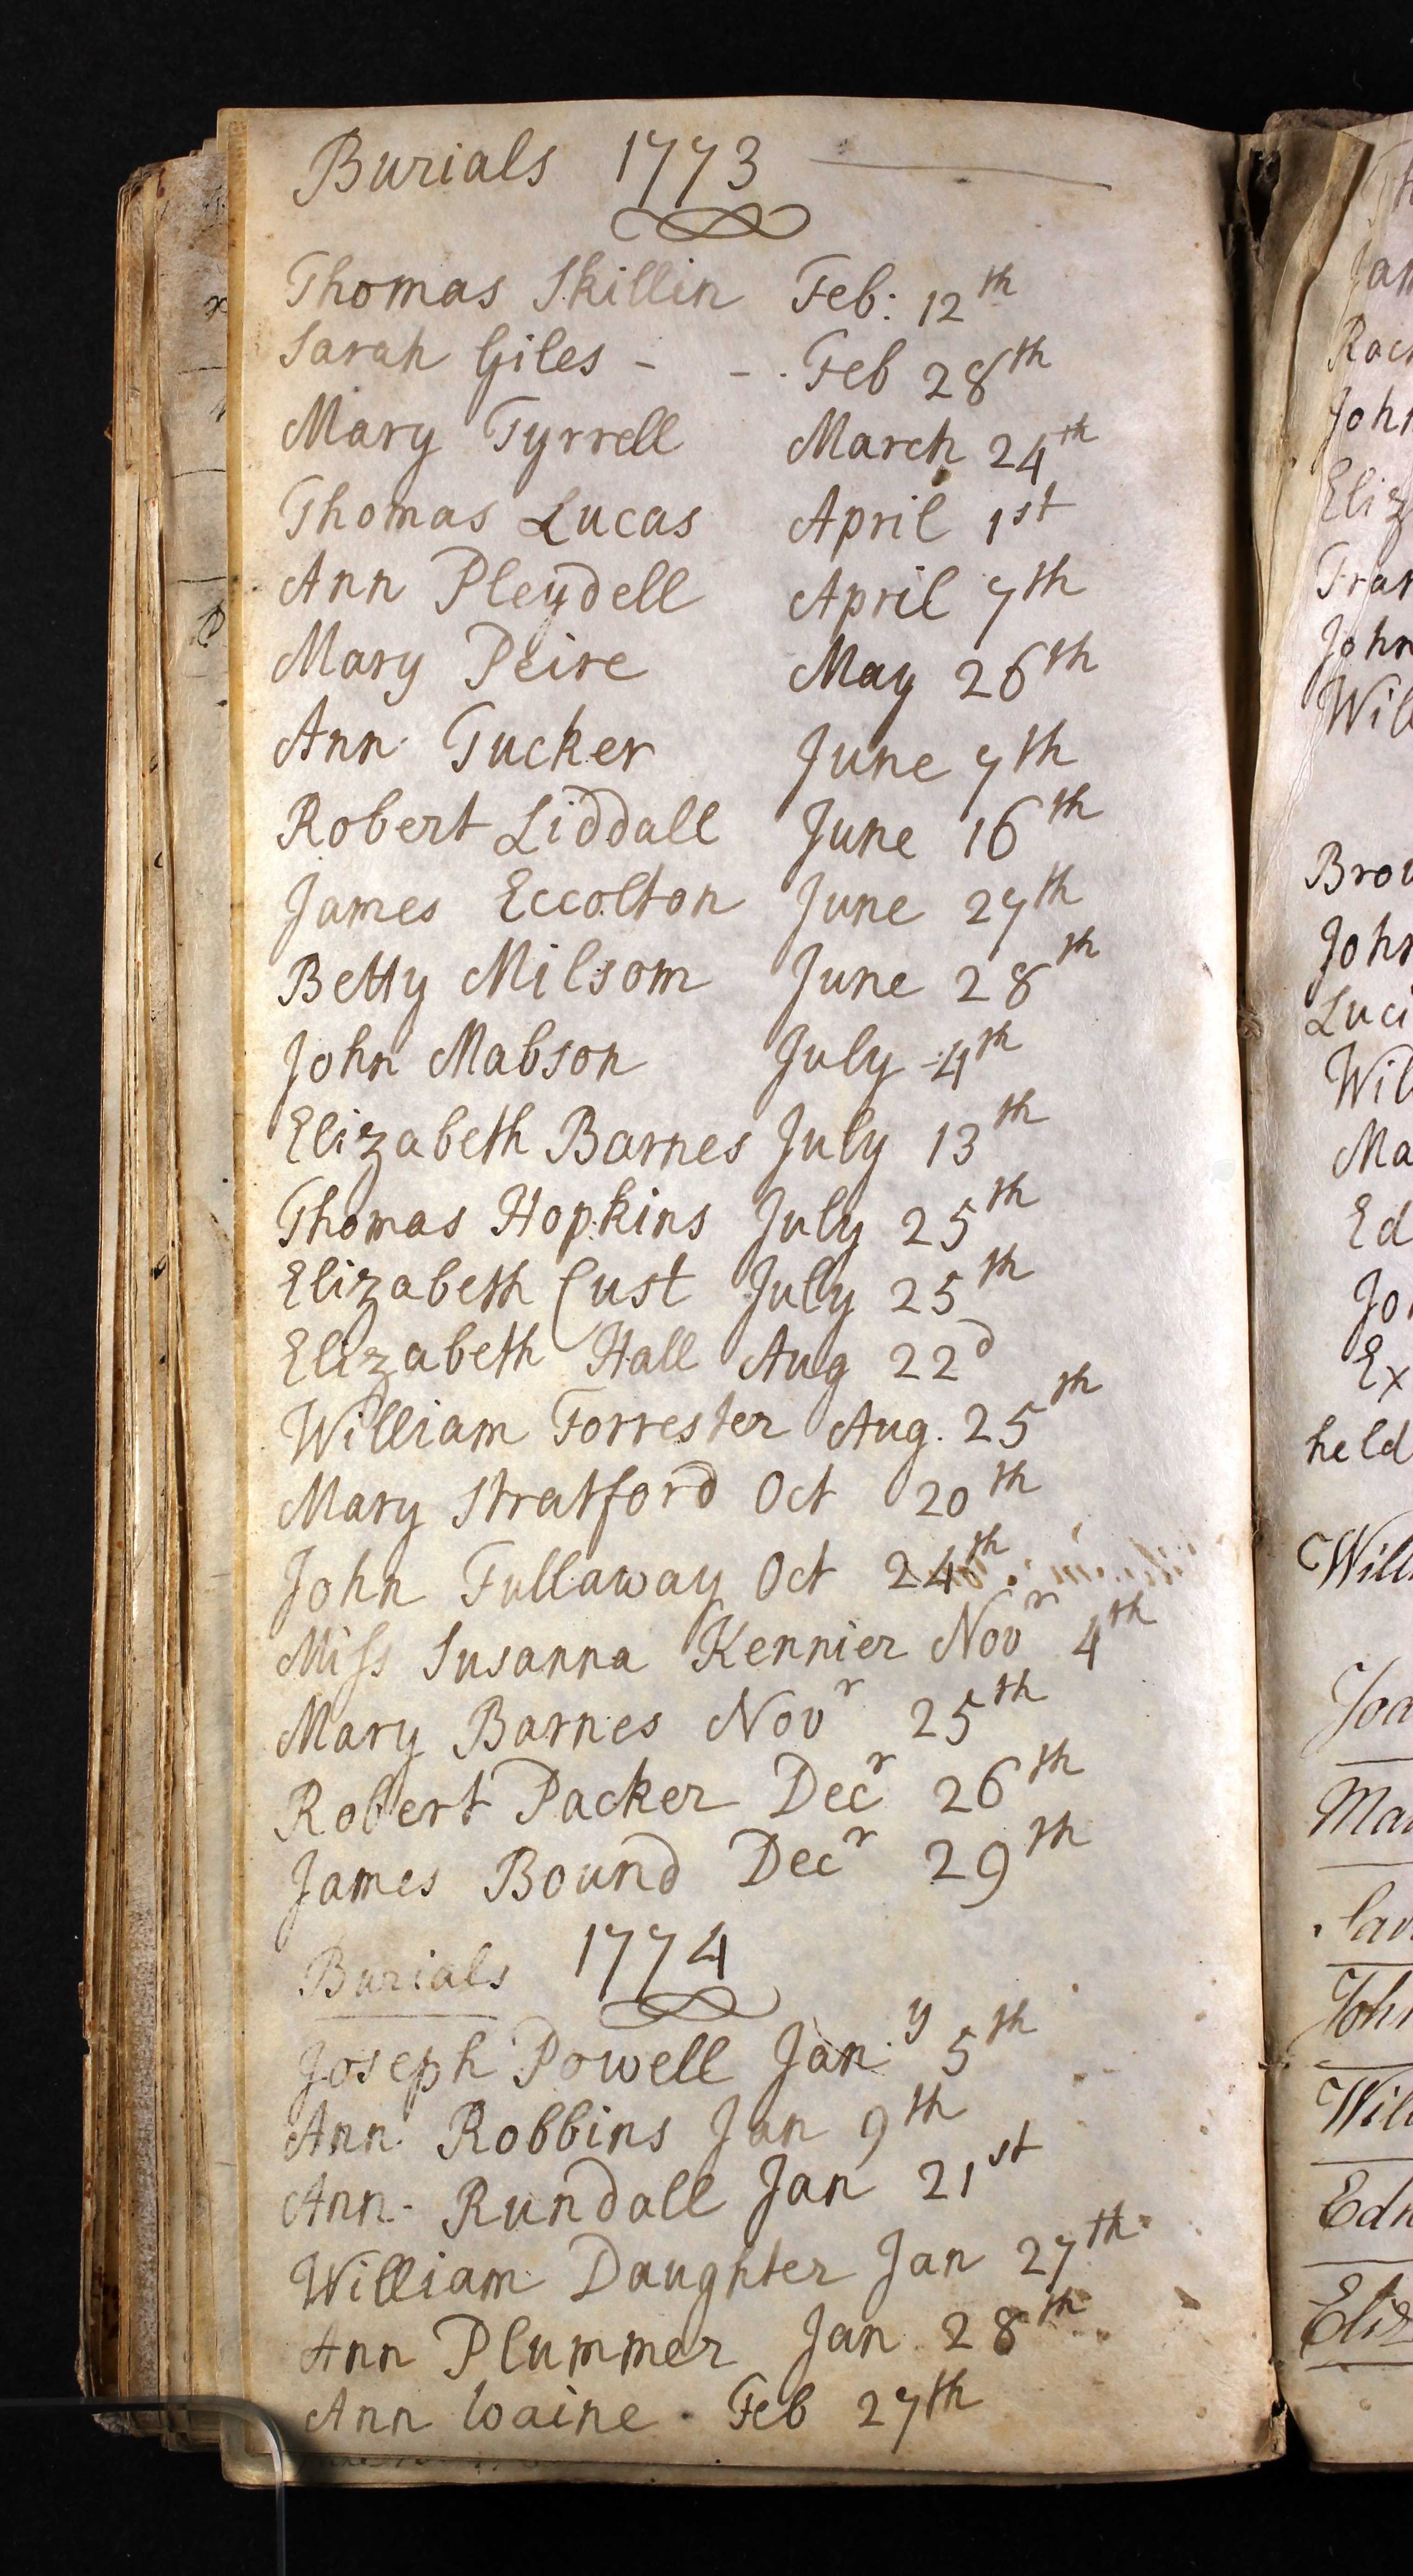 Burials 1773
Thomas Skillin Feb: 12th
Sarah Giles - - . Feb 28th
Mary Tyrrell March 24th
Thomas Lucas April 1st
Ann Pleydell April 7th
Mary Peire May 26th
Ann Tucker June 7th
Robert Liddall June 16th
James Eccolton June 27th
Betty Milsom June 28th
John Mabson July 4th
Elizabeth Barnes July 13th
Thomas Hopkins July 25th
Elizabeth Cust July 25th
Elizabeth Hall Aug 22d
William Forrester Aug. 25th
Mary Stratford Oct 20th
John Fullaway Oct 24th
Miſs Susanna Kennier Novr 4th
Mary Barnes Novr 25th
Robert Packer Decr 26th
James Bound Decr 29th
Burials 1774
Joseph Powell Jan:y 5th
Ann Robbins Jan 9th
Ann Rundall Jan 21st
William Daughter Jan 27th
Ann Plummer Jan 28th
Ann Waine Feb 27th
held